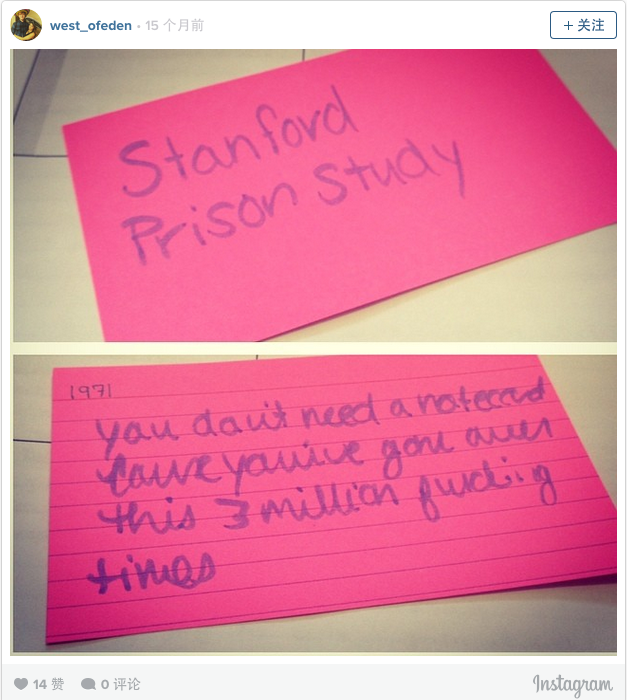 west_ofeden • 15 个月前
+ 关注
Stanford
Prison Study
1971
you don't need a notecard
cause you've gone over
this 3 million fucking
times
14 赞 0 评论
Instagram